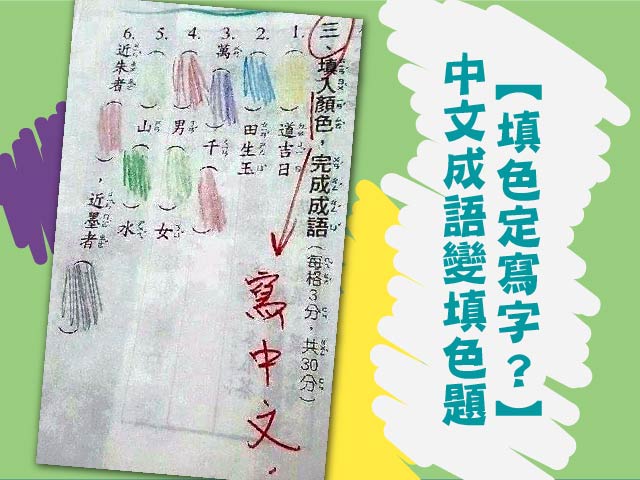 【填色定寫字？】
中文成語變填色題
三、填入顏色，完成成語（每格3分，共30分）
寫中文.
1.（ ）道吉日
2.（ ）田生玉
3.萬（ ）千（ ）
4.（ ）男（ ）女
5.（ ）山（ ）水
6.近朱者（ ），近墨者（ ）